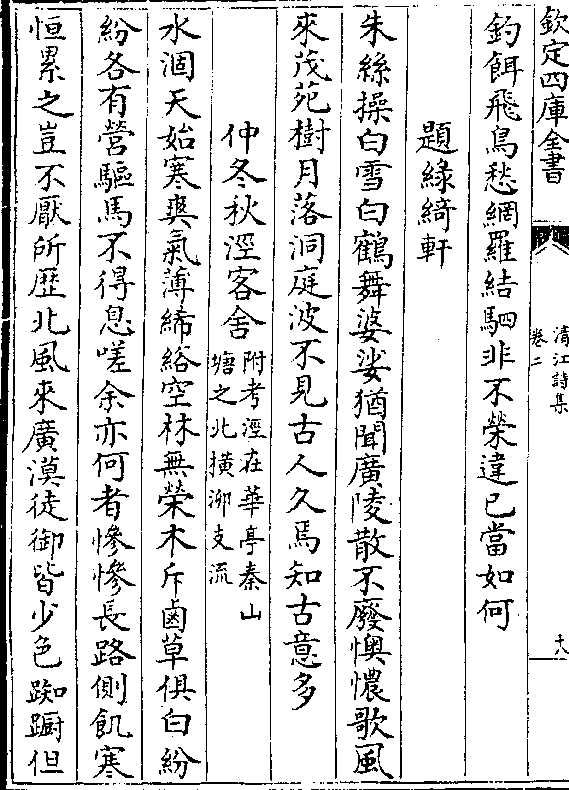 欽定四庫全書
清江詩集
卷二
十八
釣餌飛鳥愁網羅結駟非不榮違已當如何
題緑綺軒
朱絲操白雪白鶴舞婆娑猶聞廣陵散不廢懊憹歌風
來茂苑樹月落洞庭波不見古人久焉知古意多
仲冬秋涇客舍
附考涇在華亭秦山
塘之北横泖支流
水涸天始寒與氣薄絺綌空林無榮木斥鹵草俱白紛
紛各有營驅馬不得息嗟余亦何者慘慘長路側飢寒
恒累之豈不厭所歴北風來廣漠徒御皆少色踟蹰但